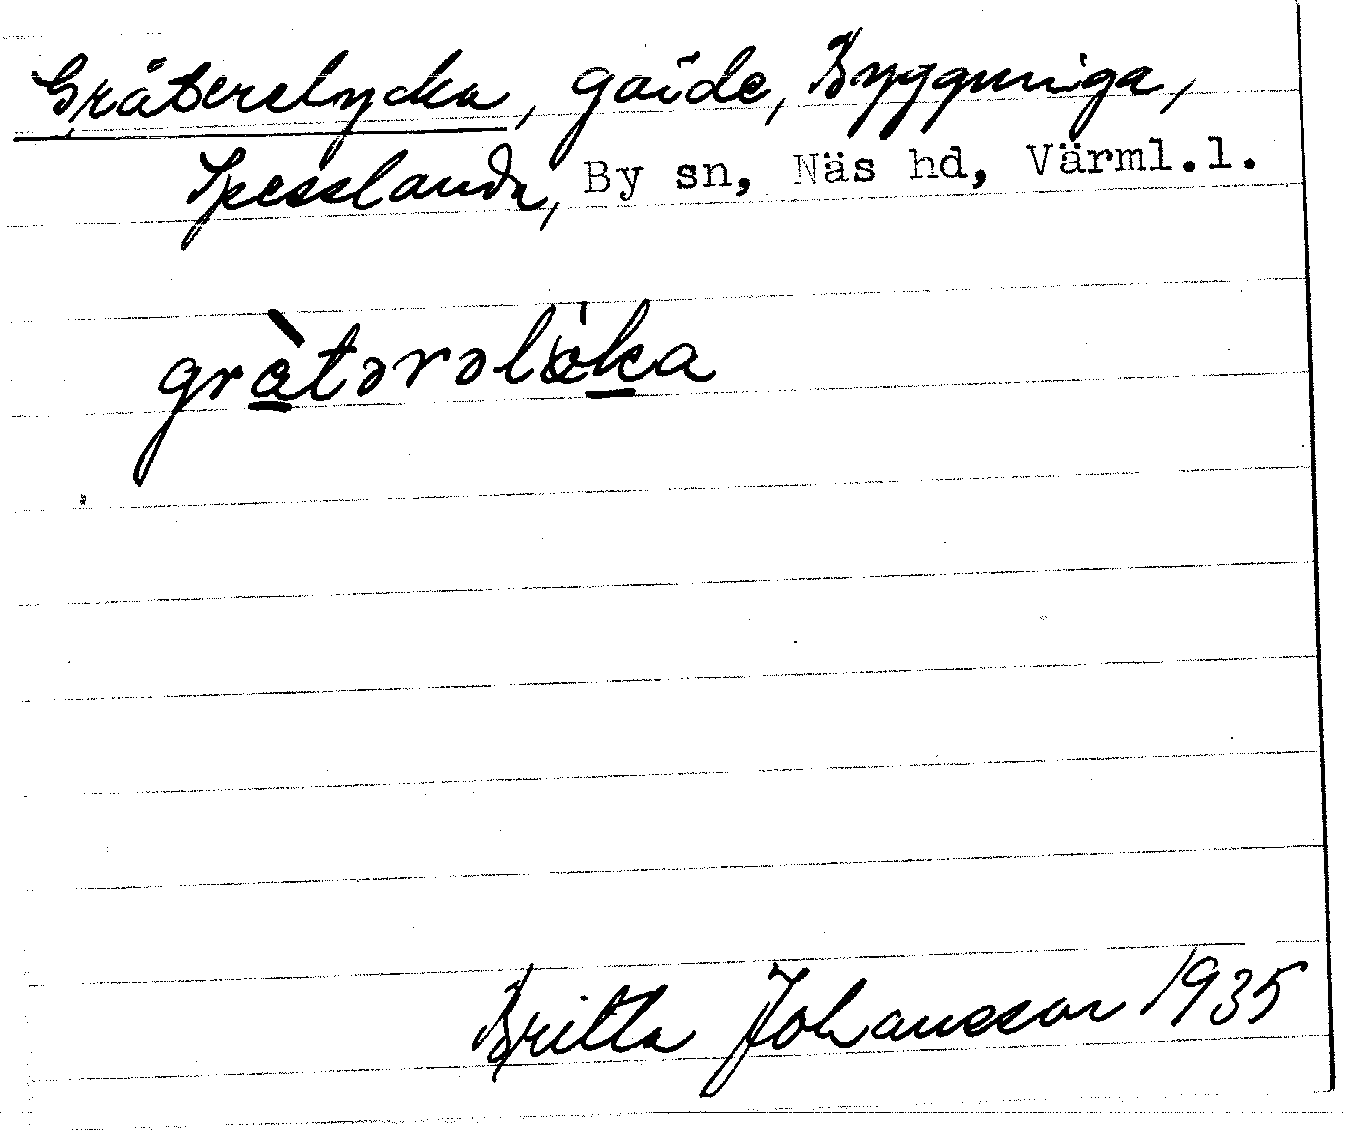 Gråterelycka, gärde, Byggninga,
Spesslanda, By sn, Näs hd, Värml.l.
gràtərəlø̀ka
Britta Johansson 1935